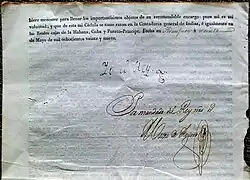 biere menester para llenar los importantísimos objetos de su recomendable encargo: pues así es mi
voluntad; y que de esta mi Cédula se tome razon en la Contaduría general de Indias, é igualmente en
las Reales cajas de la Habana, Cuba y Puerto-Príncipe. Fecha en Aranjuez á
de Mayo de mil ochocientos veinte y nueve.
Yo el Rey
Por mandado del Rey nro. S.